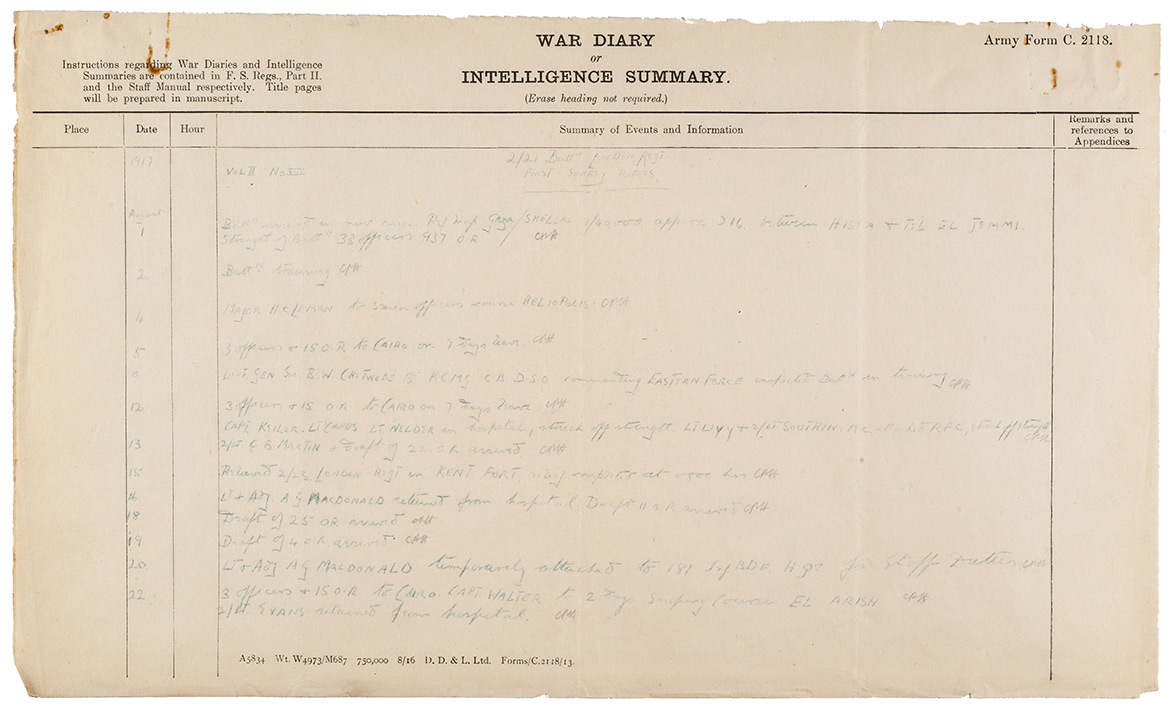 WAR DIARY
or
INTELLIGENCE SUMMARY.
(Erase heading not required.)
Army Form C. 2118.
Instructions regarding War Diaries and Intelligence
Summaries are contained in F. S. Regs., Part II.
and the Staff Manual respectively. Title pages
will be prepared in manuscript.
Place Date Hour Summary of Events and Information Remarks and references to Appendices
1917 2/21 Battn London Regt
VOL II No FIRST SURREY RIFLES.
August
1 Battn in new area. Ref Map GAZA/SHELLAL 1/40,000 approx between HISIA + TEL EL JEMMI.
Strength of Battn 33 officers 937 O.R
2 Battn training
4 MAJOR H to Senior officers course HELIOPOLIS.
5 3 officers + 15 O.R to CAIRO on 7 days leave.
Lieut. GEN Sir B.W. CHETWODE Bt KCMG C.B. D.S.O commanding EASTERN FORCE inspected Battn in training
12 3 officers + 15 O.R to CAIRO on 7 days leave
CAPT LT CAPES LT NELDER in hospital, struck off strength. LT + 2/LT SOUTHIN. M.C. R.F.C, struck off strength
13 2/Lt C.B. MARTIN + Draft of 22 O.R arrived
15 Relieved 2/23 LONDON REGT in KENT FORT, completed at hrs
16 Lt + Adj. A G MACDONALD returned from hospital, Draft 11 O.R arrived
18 Draft of 25 O.R arrived
19 Draft of 4 O.R. arrived.
20 Lt + Adj A G MACDONALD temporarily attached to 181 Inf BDE HQs for Staff Duties
22 3 officers + 15 O.R to CAIRO. CAPT WALTER to 2 days Sniping Course EL ARISH
2/Lt EVANS returned from hospital.
A5834 Wt. W4973/M687 750,000 8/16 D. D. & L. Ltd. Forms/C.2118/13.